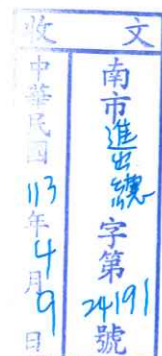 收文
南市進出總字第24191號
中華民國113年4月9日